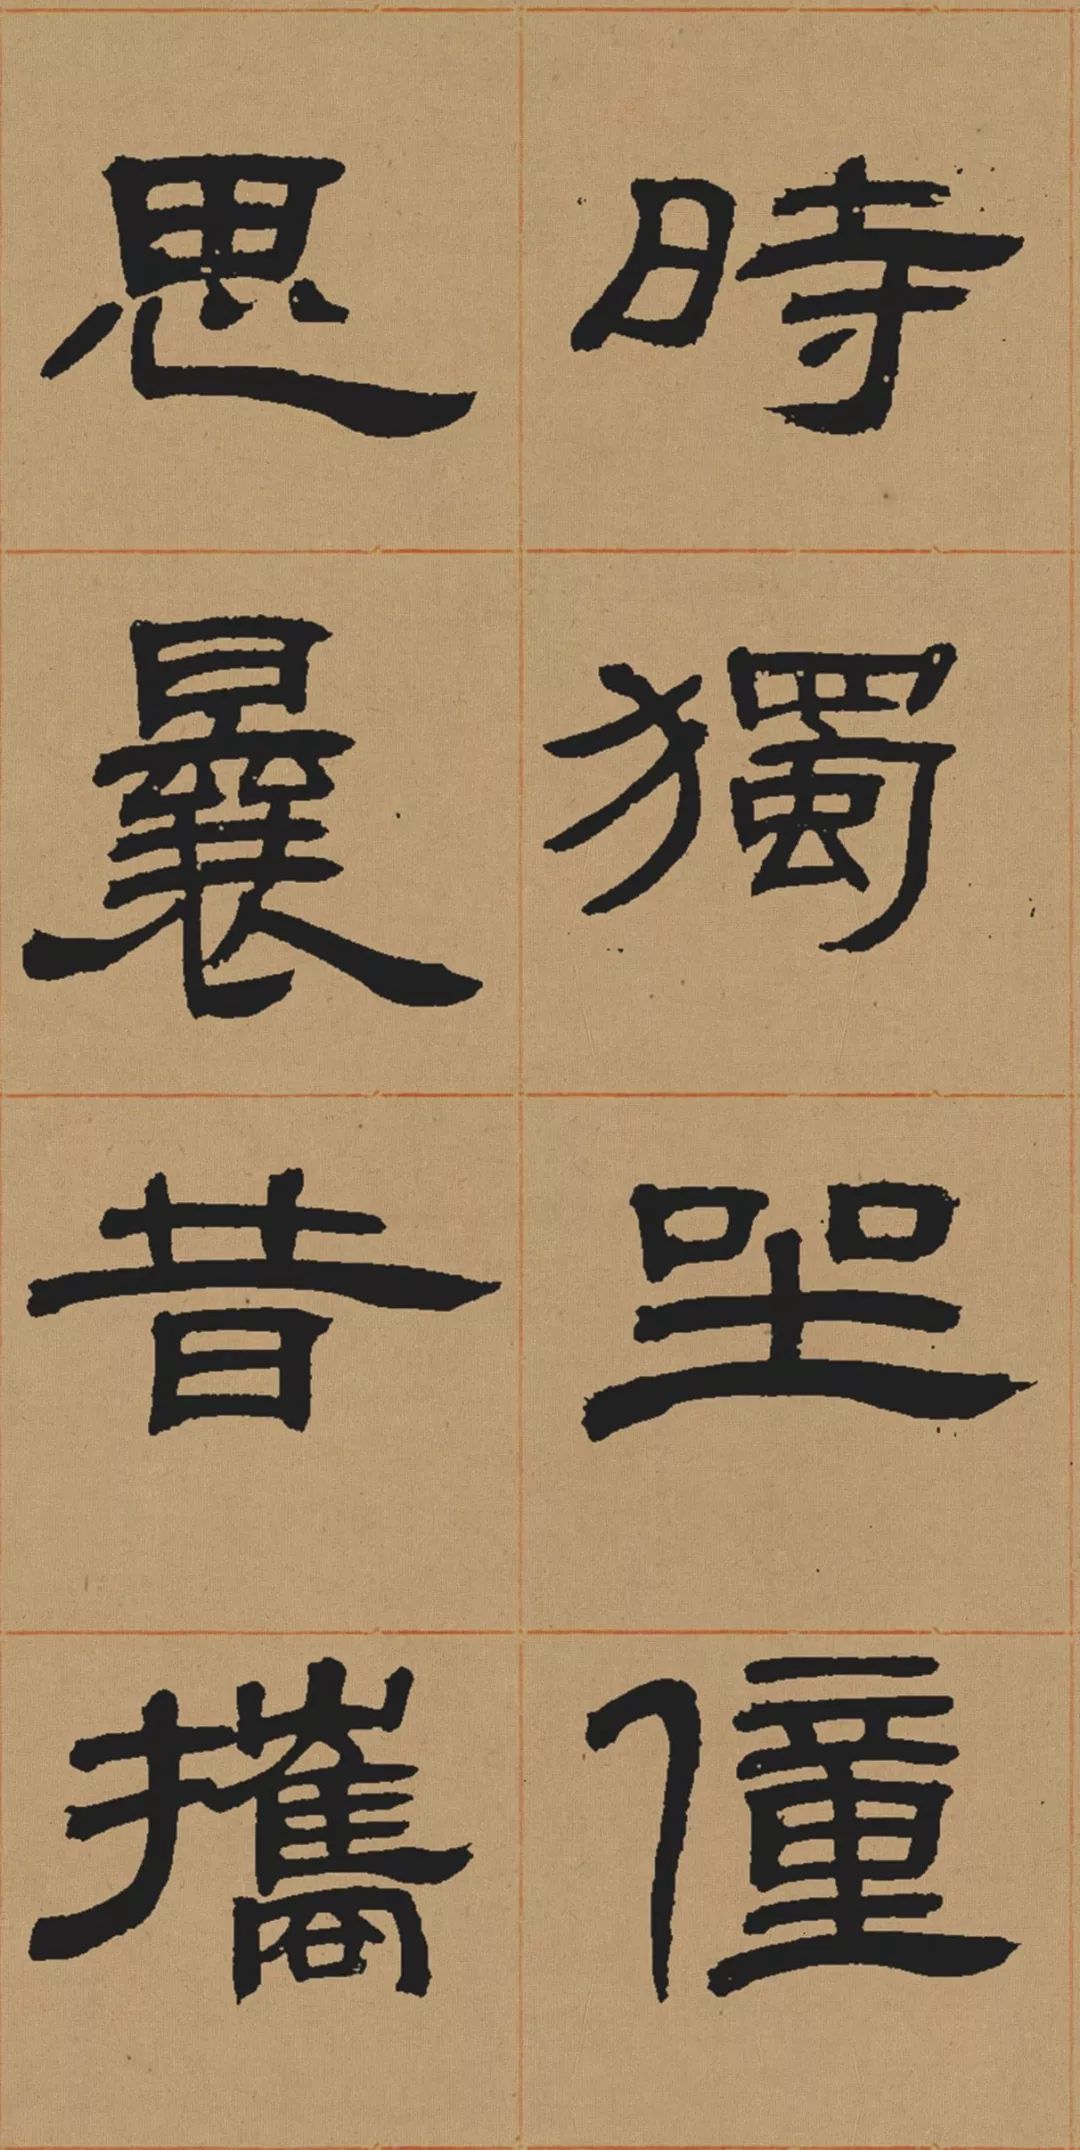 時獨坐僮
思曩昔攜